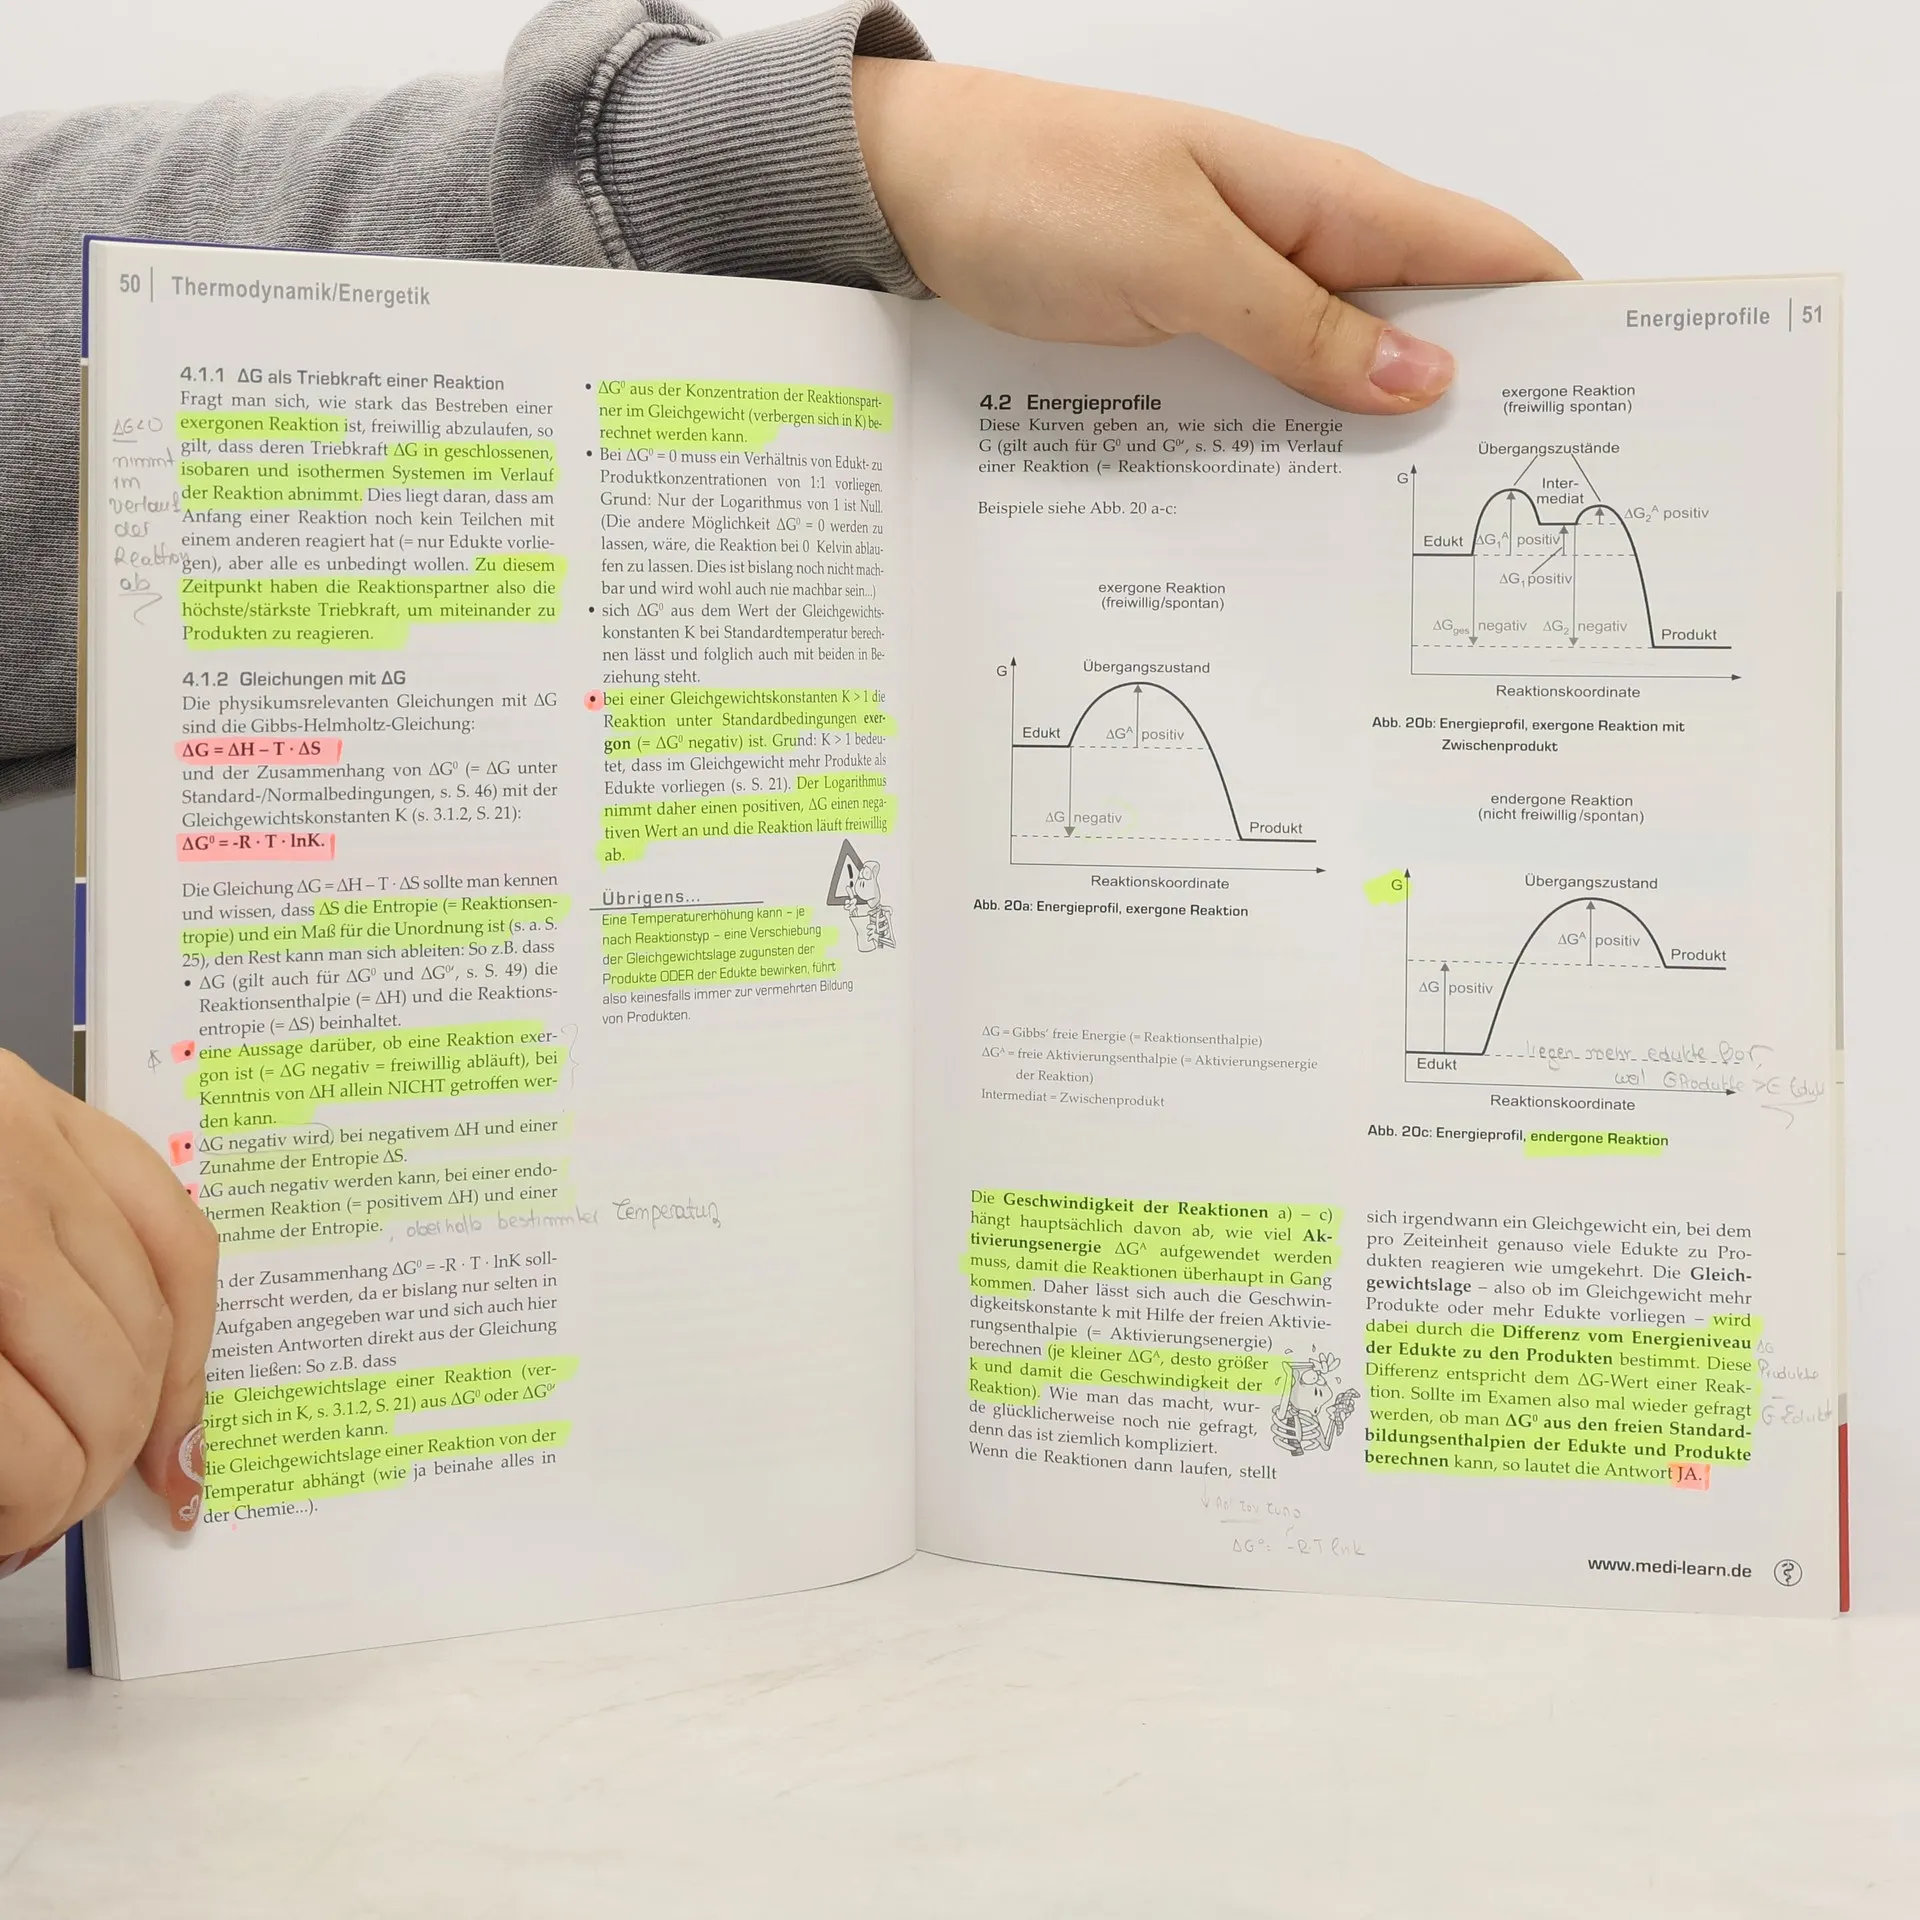 50 | Thermodynamik/Energetik
4.1.1 ΔG als Triebkraft einer Reaktion
Fragt man sich, wie stark das Bestreben einer
exergonen Reaktion ist, freiwillig abzulaufen, so
gilt, dass deren Triebkraft ΔG in geschlossenen,
isobaren und isothermen Systemen im Verlauf
der Reaktion abnimmt. Dies liegt daran, dass am
Anfang einer Reaktion noch kein Teilchen mit
einem anderen reagiert hat (= nur Edukte vorlie-
gen), aber alle es unbedingt wollen. Zu diesem
Zeitpunkt haben die Reaktionspartner also die
höchste/stärkste Triebkraft, um miteinander zu
Produkten zu reagieren.
ΔG<0
nimmt
im
Verlauf
der
Reaktion
ab
4.1.2 Gleichungen mit ΔG
Die physikumsrelevanten Gleichungen mit ΔG
sind die Gibbs-Helmholtz-Gleichung:
ΔG = ΔH – T · ΔS
und der Zusammenhang von ΔG⁰ (= ΔG unter
Standard-/Normalbedingungen, s. S. 46) mit der
Gleichgewichtskonstanten K (s. 3.1.2, S. 21):
ΔG⁰ = -R · T · lnK.
Die Gleichung ΔG = ΔH – T · ΔS sollte man kennen
und wissen, dass ΔS die Entropie (= Reaktionsen-
tropie) und ein Maß für die Unordnung ist (s. a. S.
25), den Rest kann man sich ableiten: So z.B. dass
• ΔG (gilt auch für ΔG⁰ und ΔG⁰', s. S. 49) die
Reaktionsenthalpie (= ΔH) und die Reaktions-
entropie (= ΔS) beinhaltet.
• eine Aussage darüber, ob eine Reaktion exer-
gon ist (= ΔG negativ = freiwillig abläuft), bei
Kenntnis von ΔH allein NICHT getroffen wer-
den kann.
• ΔG negativ wird, bei negativem ΔH und einer
Zunahme der Entropie ΔS.
• ΔG auch negativ werden kann, bei einer endo-
hermen Reaktion (= positivem ΔH) und einer
nahme der Entropie. , oberhalb bestimmter Temperatur
der Zusammenhang ΔG⁰ = -R · T · lnK soll-
herrscht werden, da er bislang nur selten in
Aufgaben angegeben war und sich auch hier
meisten Antworten direkt aus der Gleichung
eiten ließen: So z.B. dass
die Gleichgewichtslage einer Reaktion (ver-
birgt sich in K, s. 3.1.2, S. 21) aus ΔG⁰ oder ΔG⁰'
berechnet werden kann.
die Gleichgewichtslage einer Reaktion von der
Temperatur abhängt (wie ja beinahe alles in
der Chemie...).
• ΔG⁰ aus der Konzentration der Reaktionspart-
ner im Gleichgewicht (verbergen sich in K) be-
rechnet werden kann.
• Bei ΔG⁰ = 0 muss ein Verhältnis von Edukt- zu
Produktkonzentrationen von 1:1 vorliegen.
Grund: Nur der Logarithmus von 1 ist Null.
(Die andere Möglichkeit ΔG⁰ = 0 werden zu
lassen, wäre, die Reaktion bei 0 Kelvin ablau-
fen zu lassen. Dies ist bislang noch nicht mach-
bar und wird wohl auch nie machbar sein...)
• sich ΔG⁰ aus dem Wert der Gleichgewichts-
konstanten K bei Standardtemperatur berech-
nen lässt und folglich auch mit beiden in Be-
ziehung steht.
• bei einer Gleichgewichtskonstanten K > 1 die
Reaktion unter Standardbedingungen exer-
gon (= ΔG⁰ negativ) ist. Grund: K > 1 bedeu-
tet, dass im Gleichgewicht mehr Produkte als
Edukte vorliegen (s. S. 21). Der Logarithmus
nimmt daher einen positiven, ΔG einen nega-
tiven Wert an und die Reaktion läuft freiwillig
ab.
Übrigens...
Eine Temperaturerhöhung kann – je
nach Reaktionstyp – eine Verschiebung
der Gleichgewichtslage zugunsten der
Produkte ODER der Edukte bewirken, führt
also keinesfalls immer zur vermehrten Bildung
von Produkten.
Energieprofile | 51
4.2 Energieprofile
Diese Kurven geben an, wie sich die Energie
G (gilt auch für G⁰ und G⁰', s. S. 49) im Verlauf
einer Reaktion (= Reaktionskoordinate) ändert.
Beispiele siehe Abb. 20 a-c:
exergone Reaktion
(freiwillig/spontan)
G
Übergangszustand
Edukt
ΔGᴬ positiv
ΔG negativ
Produkt
Reaktionskoordinate
Abb. 20a: Energieprofil, exergone Reaktion
ΔG = Gibbs' freie Energie (= Reaktionsenthalpie)
ΔGᴬ = freie Aktivierungsenthalpie (= Aktivierungsenergie
der Reaktion)
Intermediat = Zwischenprodukt
exergone Reaktion
(freiwillig spontan)
Übergangszustände
G
Inter-
mediat
ΔG₂ᴬ positiv
Edukt
ΔG₁ᴬ positiv
ΔG₁ positiv
ΔGges negativ
ΔG₂ negativ
Produkt
Reaktionskoordinate
Abb. 20b: Energieprofil, exergone Reaktion mit
Zwischenprodukt
endergone Reaktion
(nicht freiwillig/spontan)
G
Übergangszustand
ΔGᴬ positiv
Produkt
ΔG positiv
Edukt
liegen mehr edukte vor,
weil G Produkte > G Edukt
Reaktionskoordinate
Abb. 20c: Energieprofil, endergone Reaktion
Die Geschwindigkeit der Reaktionen a) – c)
hängt hauptsächlich davon ab, wie viel Ak-
tivierungsenergie ΔGᴬ aufgewendet werden
muss, damit die Reaktionen überhaupt in Gang
kommen. Daher lässt sich auch die Geschwin-
digkeitskonstante k mit Hilfe der freien Aktivie-
rungsenthalpie (= Aktivierungsenergie)
berechnen (je kleiner ΔGᴬ, desto größer
k und damit die Geschwindigkeit der
Reaktion). Wie man das macht, wur-
de glücklicherweise noch nie gefragt,
denn das ist ziemlich kompliziert.
Wenn die Reaktionen dann laufen, stellt
ΔG⁰ = -RT lnk
sich irgendwann ein Gleichgewicht ein, bei dem
pro Zeiteinheit genauso viele Edukte zu Pro-
dukten reagieren wie umgekehrt. Die Gleich-
gewichtslage – also ob im Gleichgewicht mehr
Produkte oder mehr Edukte vorliegen – wird
dabei durch die Differenz vom Energieniveau
der Edukte zu den Produkten bestimmt. Diese
Differenz entspricht dem ΔG-Wert einer Reak-
tion. Sollte im Examen also mal wieder gefragt
werden, ob man ΔG⁰ aus den freien Standard-
bildungsenthalpien der Edukte und Produkte
berechnen kann, so lautet die Antwort JA.
ΔG
Produkte
–
G Edukt
www.medi-learn.de